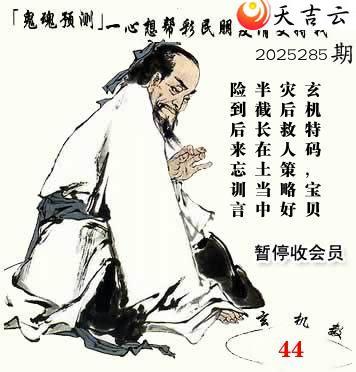 天吉云
「鬼魂预测」一心想帮彩民朋
2025285期
玄机特码，宝贝
灾后救人策略好
半截长在土当中
险到后来忘训言
暂停收会员
玄机
44